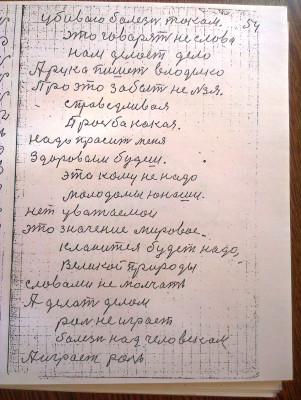 54
убиваю болезн токам.
это говарят не слова
нам делает дело
А рука пишет владимо
Про это забыт не лзя.
справедливая
Прозба какая.
надо прасит меня
Здоровам будеш.
это кому не надо
моладому юнаши.
нет уважаемои
это значение мировое
кланится будет надо,
Великой природы
словами не молчать
А делат делам
рол не играет
болезн над человекам
А играет рол